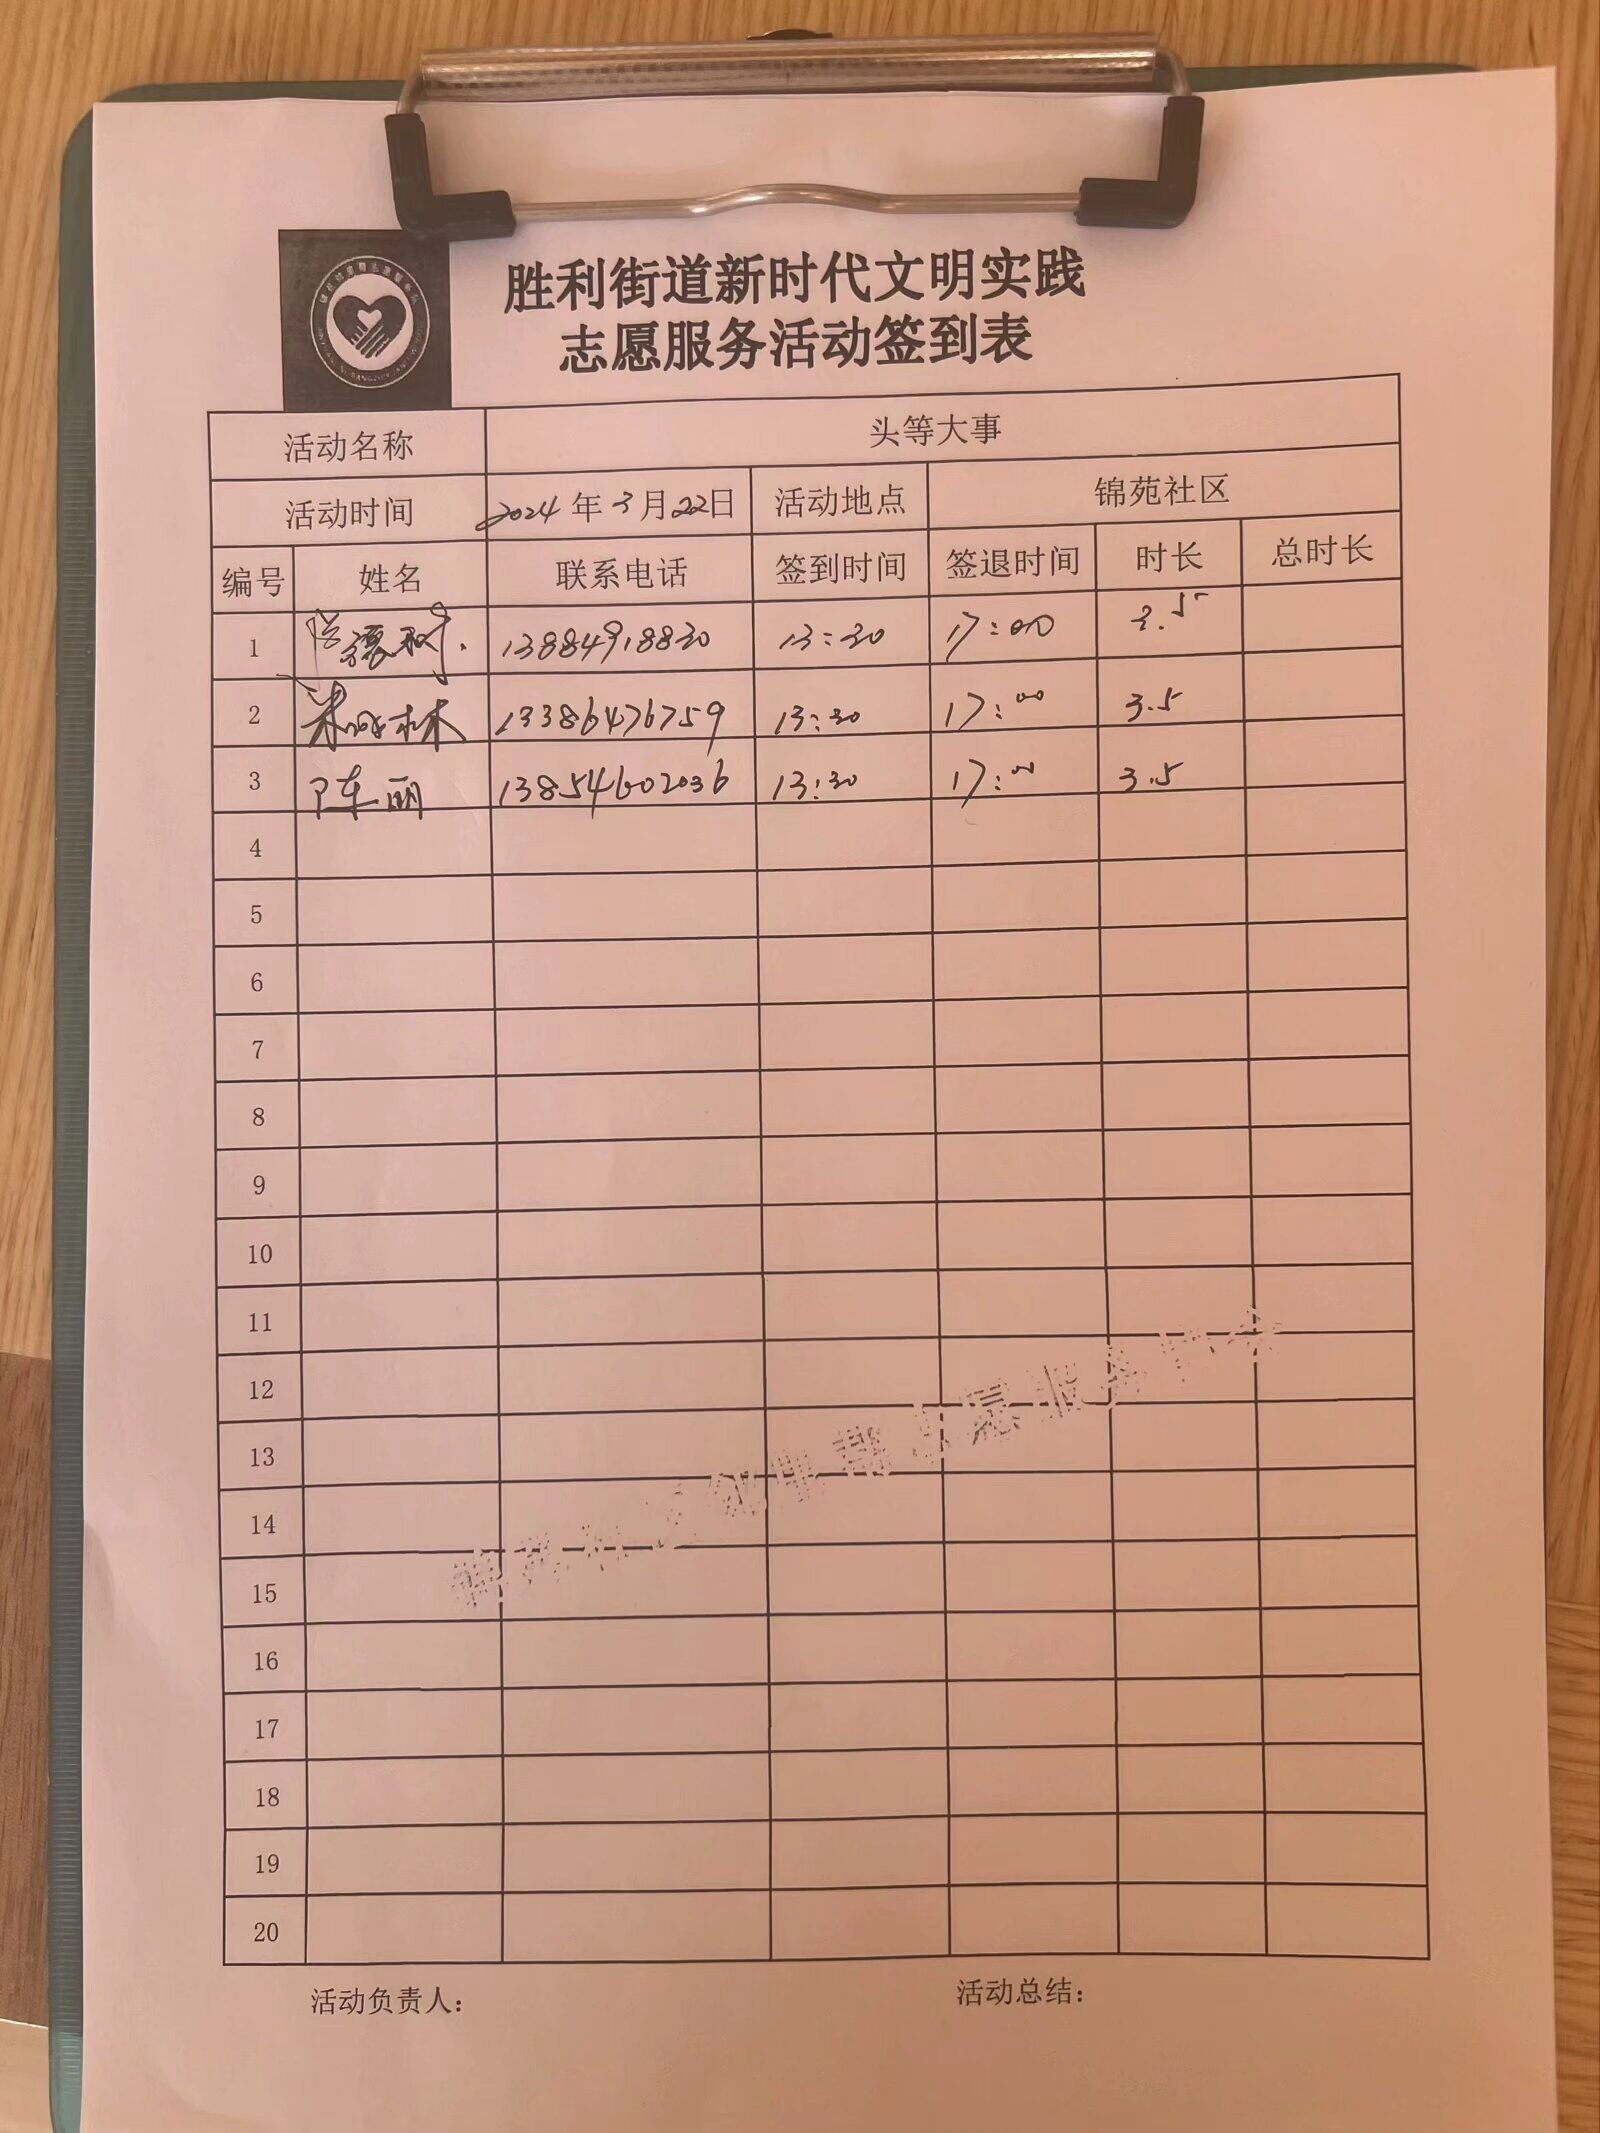 胜利街道新时代文明实践
志愿服务活动签到表
活动名称 头等大事
活动时间 2024年3月22日 活动地点 锦苑社区
编号 姓名 联系电话 签到时间 签退时间 时长 总时长
1 13884918830 13:30 17:00 3.5
2 13386476759 13:30 17:00 3.5
3 陈丽 13854602036 13:30 17:00 3.5
4
5
6
7
8
9
10
11
12
13
14
15
16
17
18
19
20
活动负责人： 活动总结：